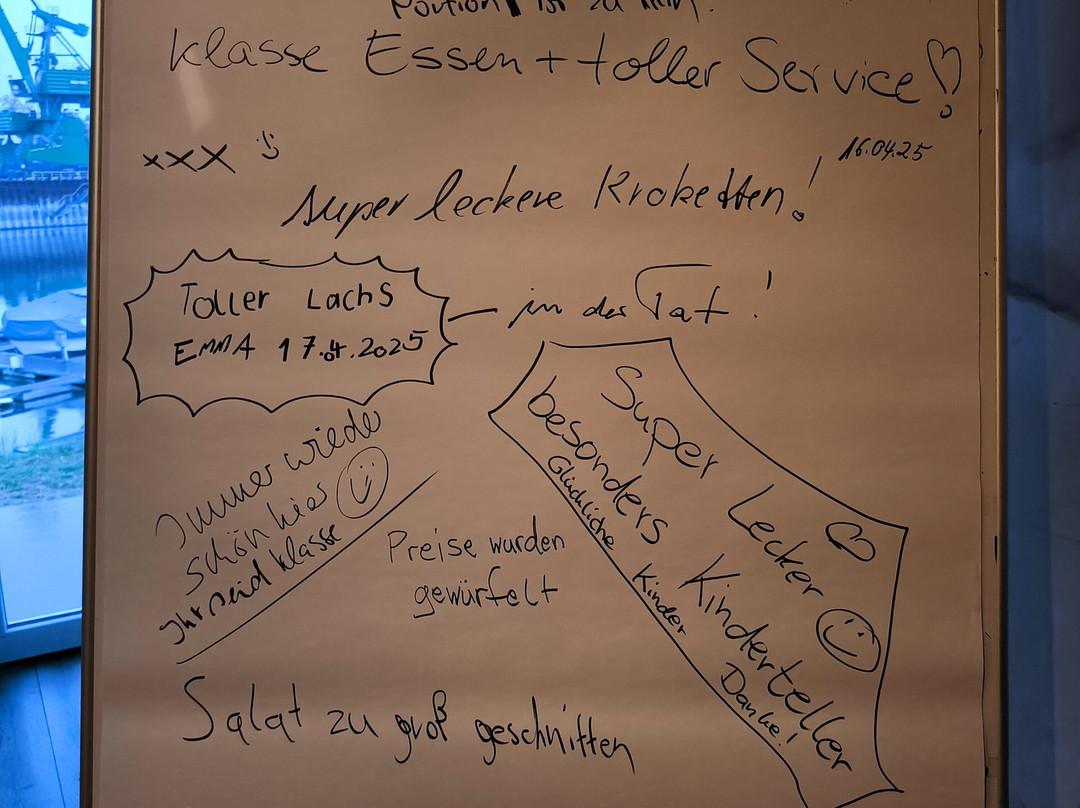 Portion ist zu
Klasse Essen + toller Service!
xxx
16.04.25
super leckere Kroketten!
Toller Lachs
EMMA 17.04.2025
in der Tat!
Immer wieder
schön hier
Ihr seid klasse
Preise wurden
gewürfelt
Super Lecker
besonders Kinderteller
Glückliche Kinder Danke!
Salat zu groß geschnitten